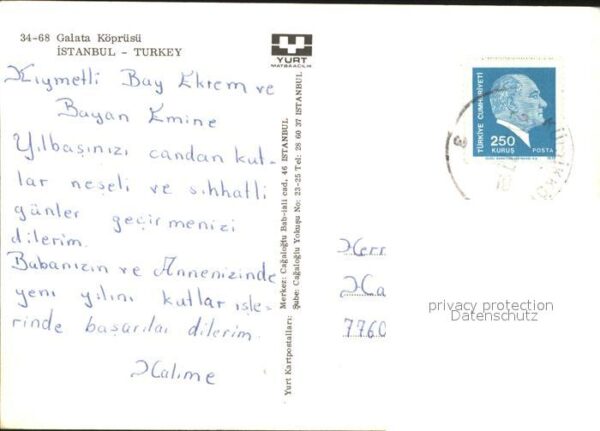 34-68 Galata Köprüsü
İSTANBUL - TURKEY
Kıymetli Bay Ekrem ve
Bayan Emine
Yılbaşınızı candan kut-
lar neşeli ve sıhhatli
günler geçirmenizi
dilerim.
Babanızın ve Annenizinde
yeni yılını kutlar işle-
rinde başarılaı dilerim.
Halime
YURT
MATBAACILIK
Yurt Kartpostalları: Merkez: Cağaloğlu Bab-ıali cad, 46 İSTANBUL
Şube: Cağaloğlu Yokuşu No: 23-25 Tel: 28 60 37 İSTANBUL
TÜRKİYE CUMHURİYETİ
250
KURUŞ
POSTA
Herr
Ha
7760
privacy protection
Datenschutz